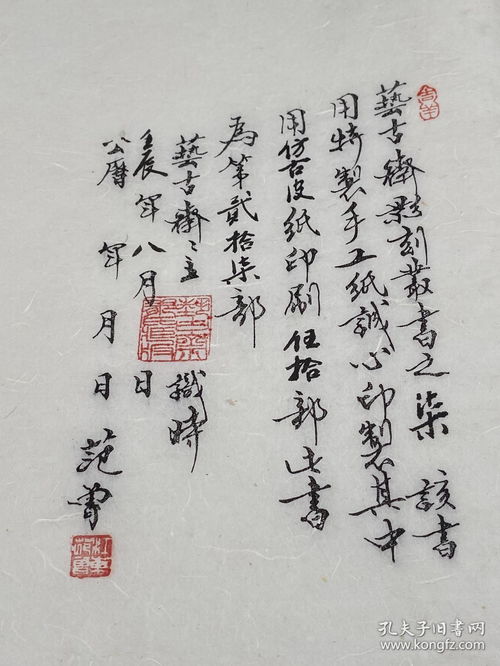 藝古齋影刻叢書之柒 該書
用特製手工紙誠心印製其中
用仿古皮紙印刷伍拾部此書
為第貳拾柒部
藝古齋〻主 識時
壬辰年八月 日
公曆 年 月 日 范曾
孔夫子旧书网
www.kongfz.com